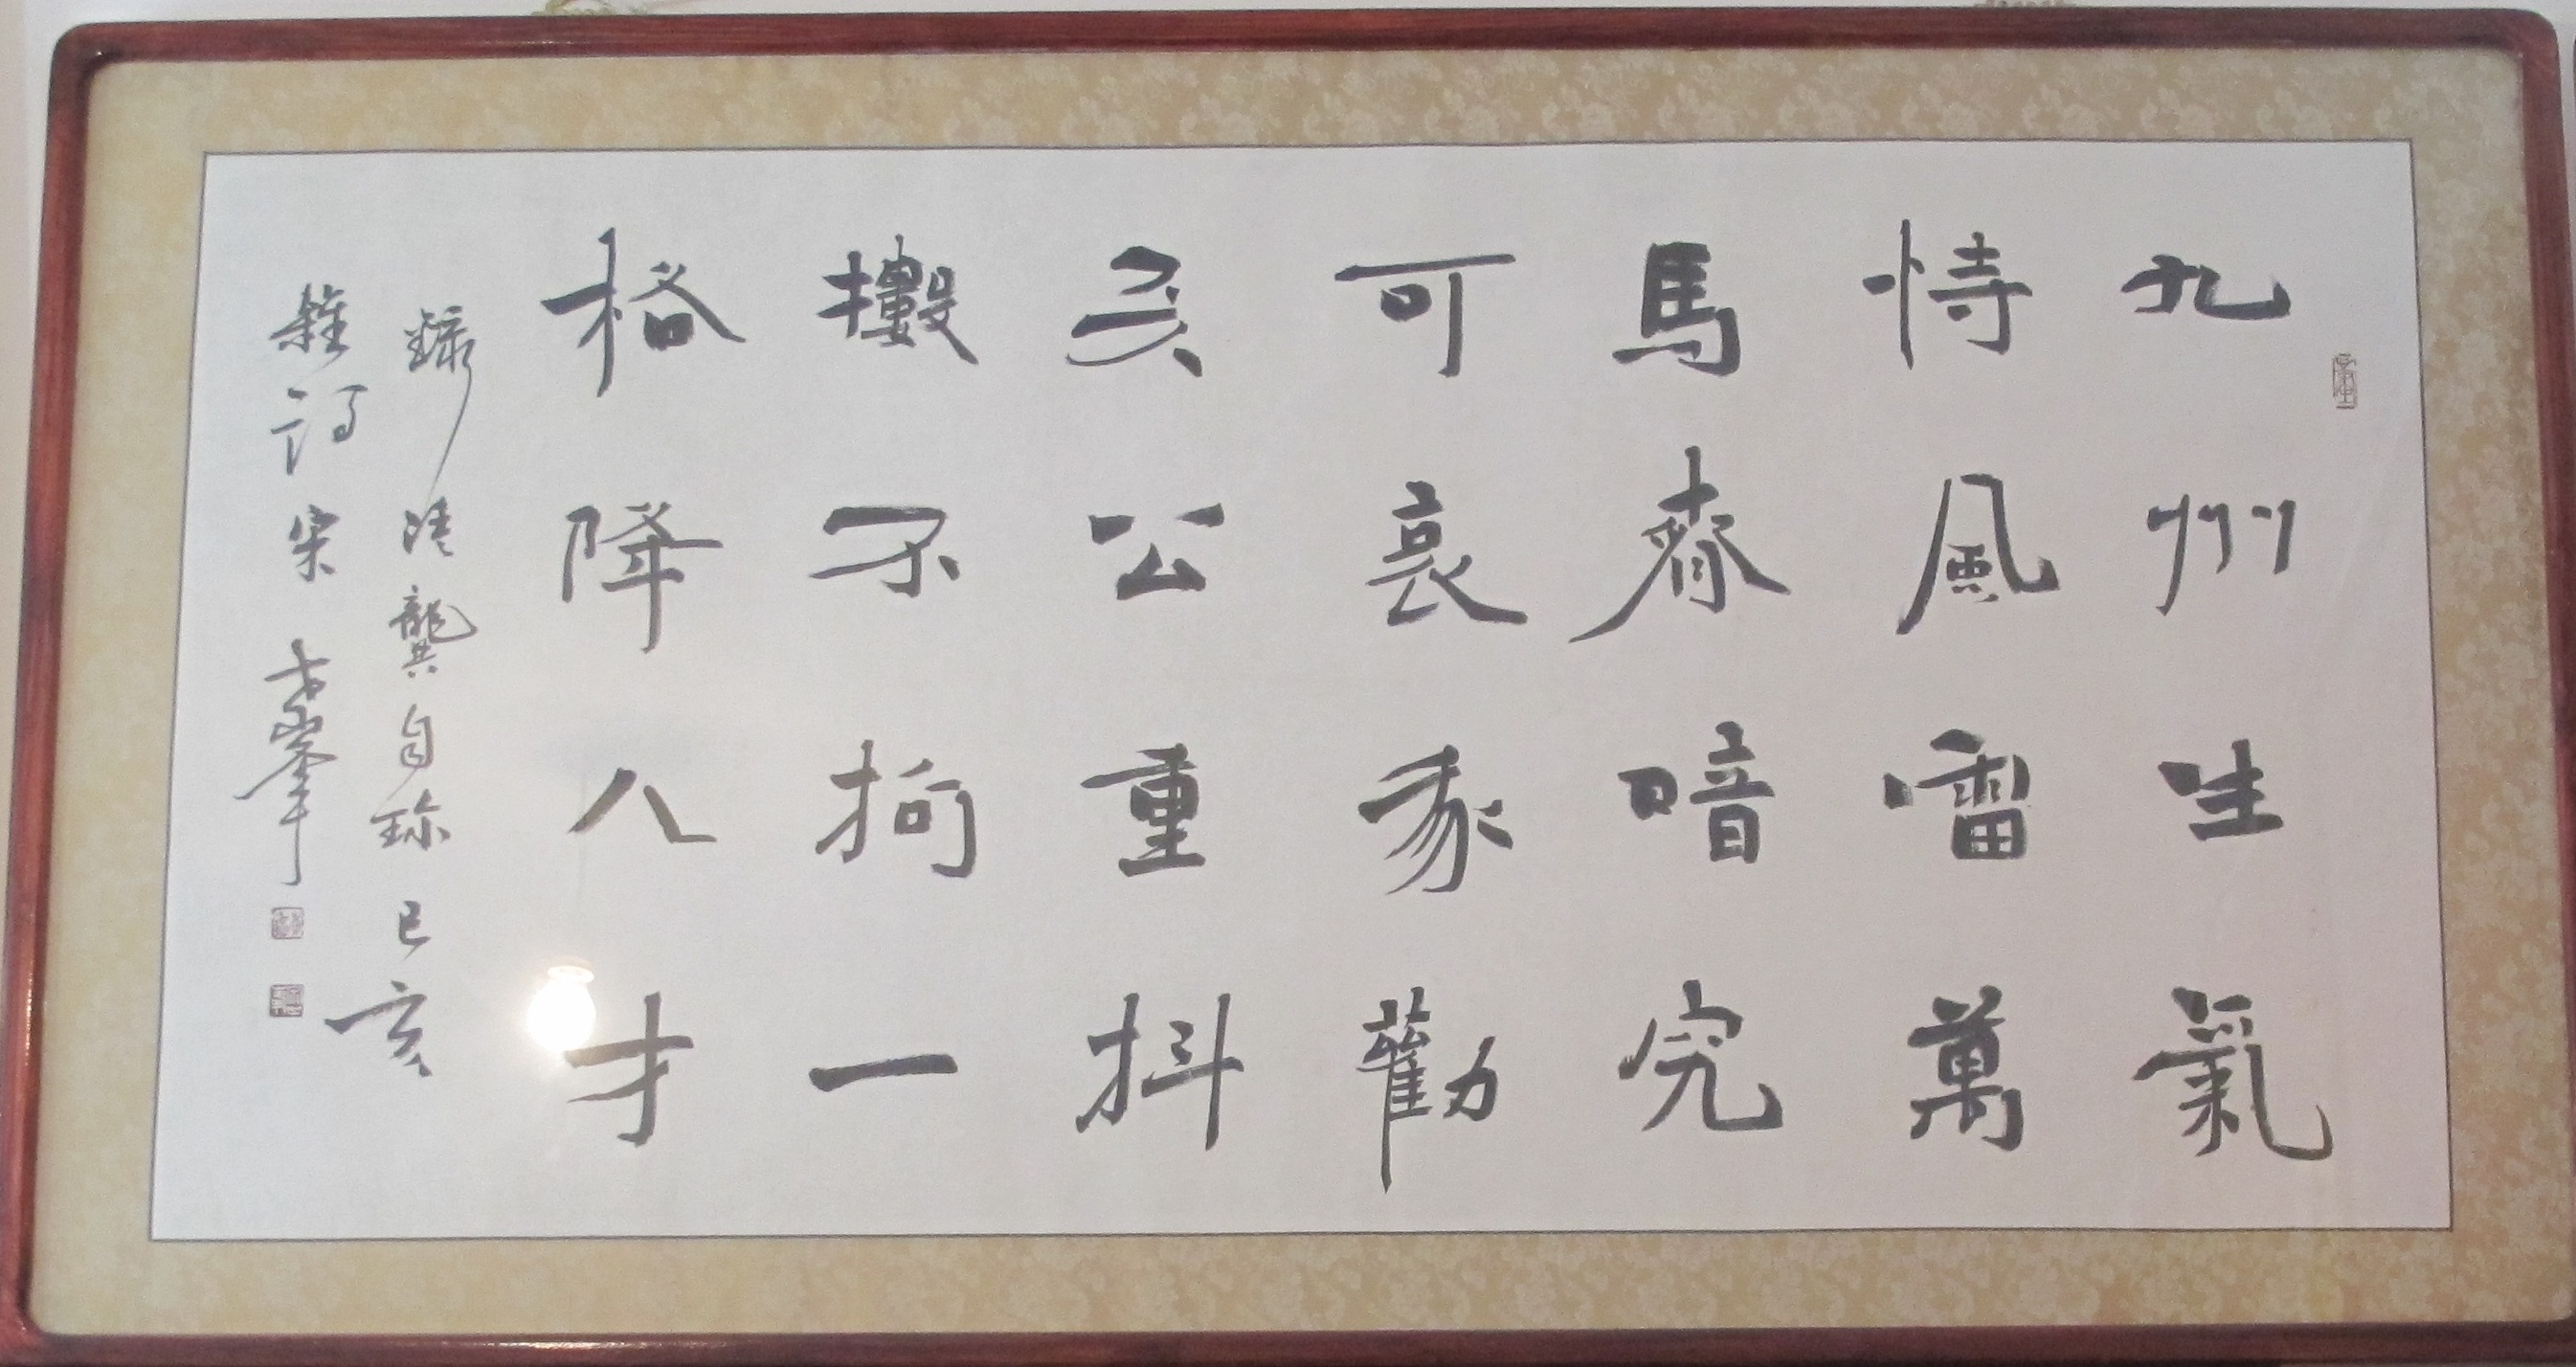 九州生氣
恃風雷萬
馬齊喑究
可哀我勸
天公重抖
擻不拘一
格降人才
錄清龔自珍己亥
雜詩宋